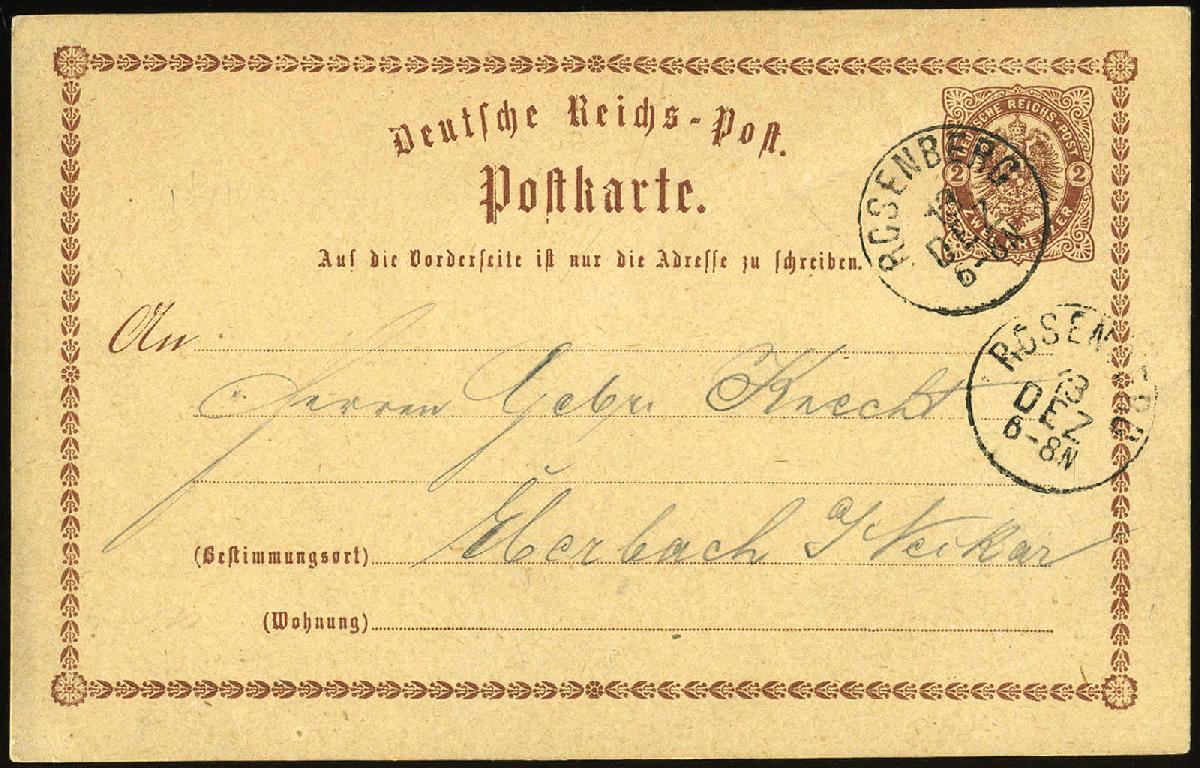 Deutsche Reichs-Post.
Postkarte.
Auf die Vorderseite ist nur die Adresse zu schreiben.
DEUTSCHE REICHS-POST
2 2
ZWEI KREUZER
ROSENBERG
DEZ
6-8N
ROSENBERG
13
DEZ
6-8N
An
Herren Gebr. Knecht
(Bestimmungsort) Eberbach a/Neckar
(Wohnung)